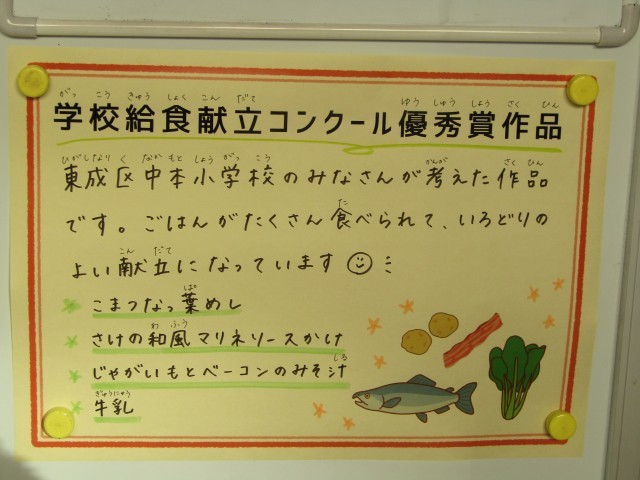 学校給食献立コンクール優秀賞作品
東成区中本小学校のみなさんが考えた作品
です。ごはんがたくさん食べられて、いろどりの
よい献立になっています
こまつなっ葉めし
さけの和風マリネソースかけ
じゃがいもとベーコンのみそ汁
牛乳